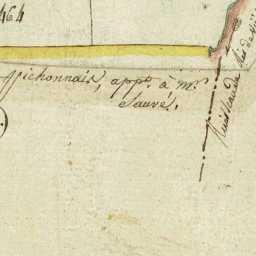 464
Pichonnais, appt. à Mr.
Sauvé.
Ruisseau de